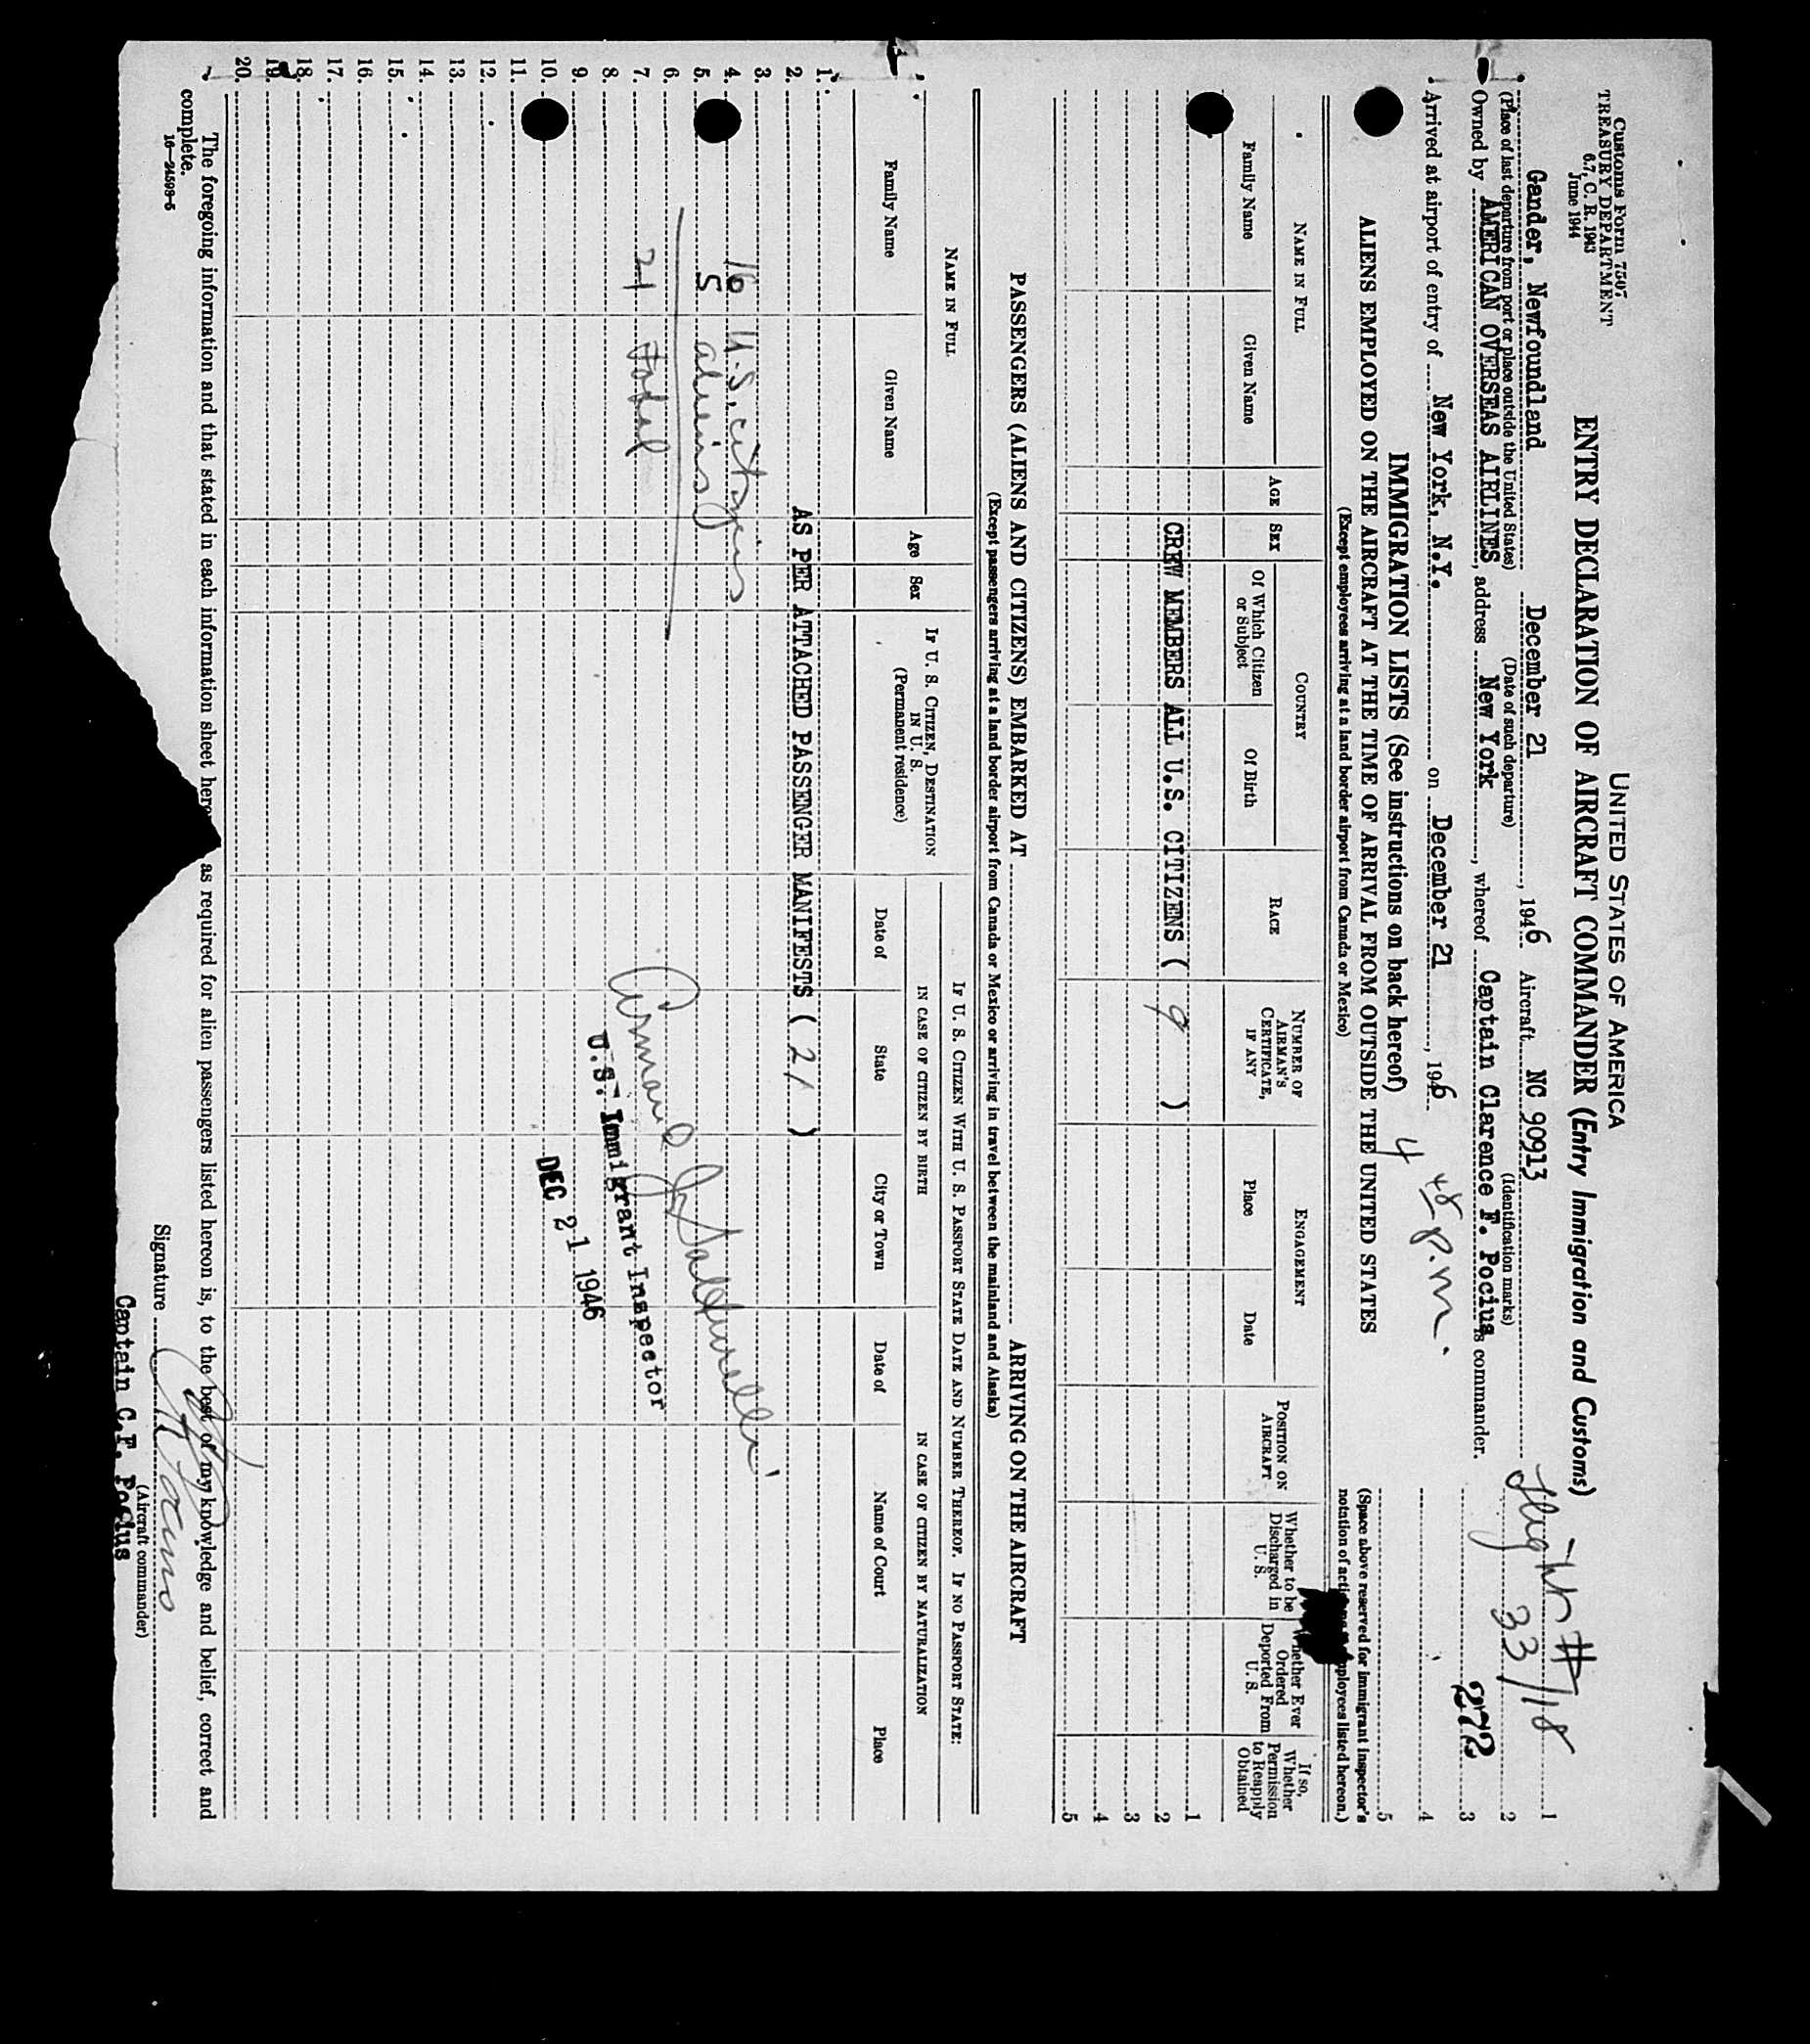 Customs Form 7507
TREASURY DEPARTMENT
6.7, C. R. 1943
June 1944
UNITED STATES OF AMERICA
ENTRY DECLARATION OF AIRCRAFT COMMANDER (Entry Immigration and Customs)
Flight # 33/18
272
Gander, Newfoundland December 21, 1946 Aircraft NC 90913
(Place of last departure from port or place outside the United States) (Date of such departure) (Identification marks)
Owned by AMERICAN OVERSEAS AIRLINES, address New York, whereof Captain Clarence F. Pocius is commander.
Arrived at airport of entry of New York, N.Y. on December 21, 1946 4 48 p.m.
1
2
3
4
5
(Space above reserved for immigrant inspector's
notation of employees listed hereon.)
IMMIGRATION LISTS (See instructions on back hereof)
ALIENS EMPLOYED ON THE AIRCRAFT AT THE TIME OF ARRIVAL FROM OUTSIDE THE UNITED STATES
(Except employees arriving at a land border airport from Canada or Mexico)
NAME IN FULL
Family Name
Given Name
AGE
SEX
COUNTRY
Of Which Citizen
or Subject
Of Birth
RACE
NUMBER OF
AIRMAN'S
CERTIFICATE,
IF ANY
ENGAGEMENT
Place
Date
POSITION ON
AIRCRAFT
Whether to be
Discharged in
U. S.
Whether Ever
Ordered
Deported From
U. S.
If so,
Whether
Permission
to Reapply
Obtained
1
CREW MEMBERS ALL U.S. CITIZENS ( 9 )
2
3
4
5
PASSENGERS (ALIENS AND CITIZENS) EMBARKED AT ARRIVING ON THE AIRCRAFT
(Except passengers arriving at a land border airport from Canada or Mexico or arriving in travel between the mainland and Alaska)
NAME IN FULL
Family Name
Given Name
Age
Sex
IF U. S. CITIZEN, DESTINATION
IN U. S.
(Permanent residence)
IF U. S. CITIZEN WITH U. S. PASSPORT STATE DATE AND NUMBER THEREOF. IF NO PASSPORT STATE:
IN CASE OF CITIZEN BY BIRTH
Date of
State
City or Town
IN CASE OF CITIZEN BY NATURALIZATION
Date of
Name of Court
Place
1.
2. AS PER ATTACHED PASSENGER MANIFESTS ( 21 )
3.
4. 16 U.S. citizens
5. 5 aliens
6.
7. 21 total
8. U.S. Immigrant Inspector
9.
10. DEC 21 1946
11.
12.
13.
14.
15.
16.
17.
18.
19.
20.
The foregoing information and that stated in each information sheet as required for alien passengers listed hereon is, to the best of my knowledge and belief, correct and
complete.
16—24598-5
Signature
(Aircraft commander)
Captain C.F. Pocius